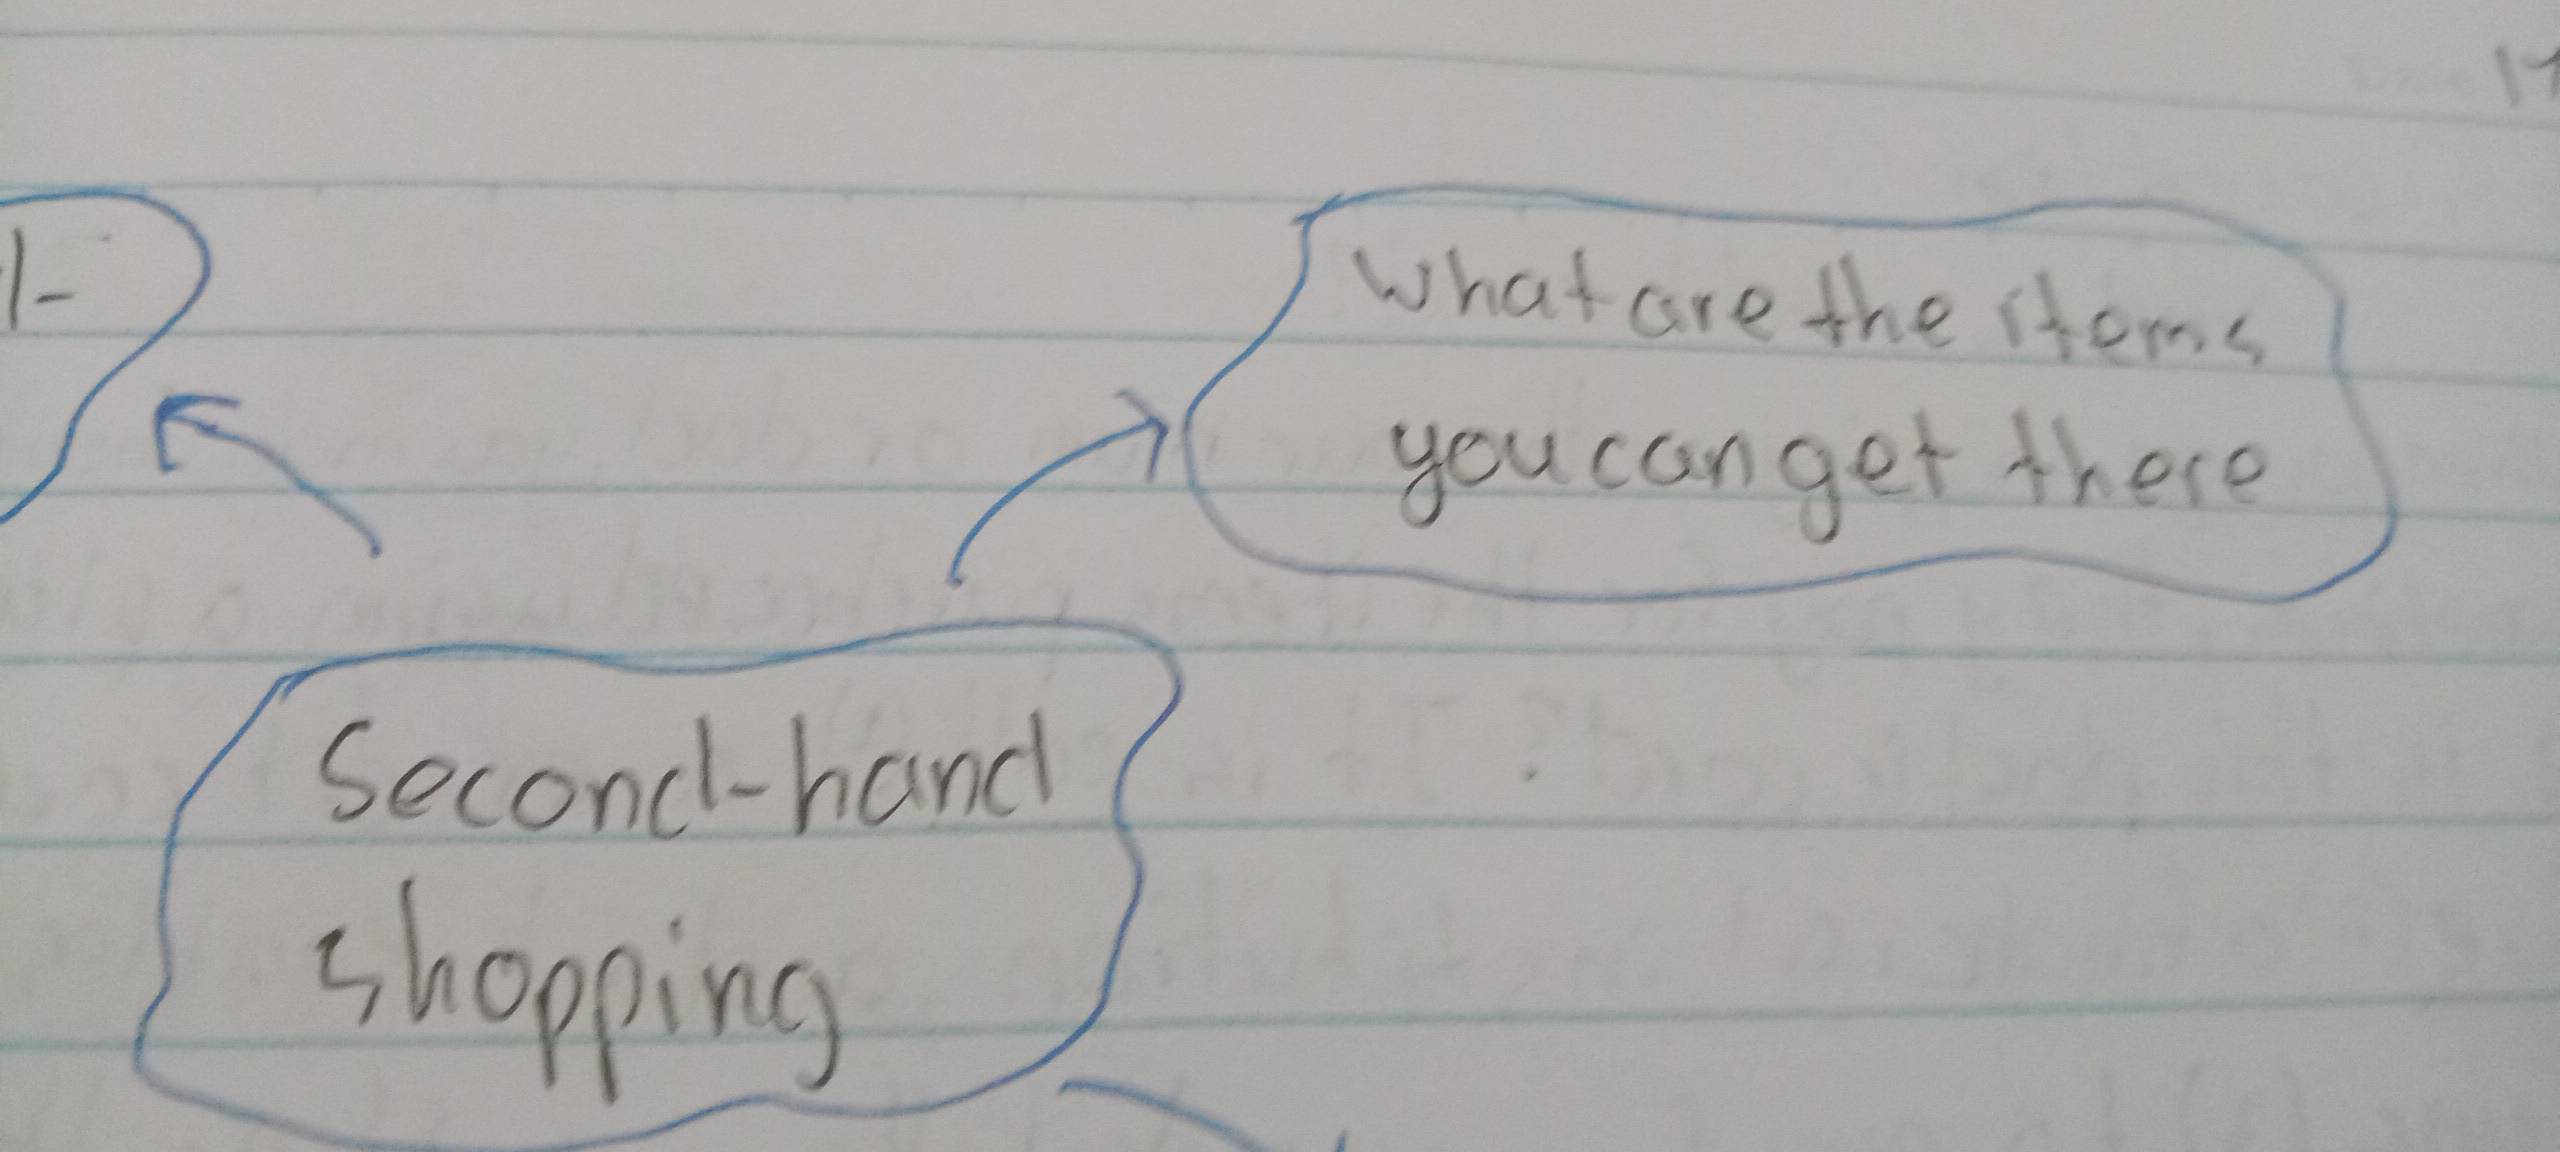 What are the items
you can get there
Second-hand
shopping